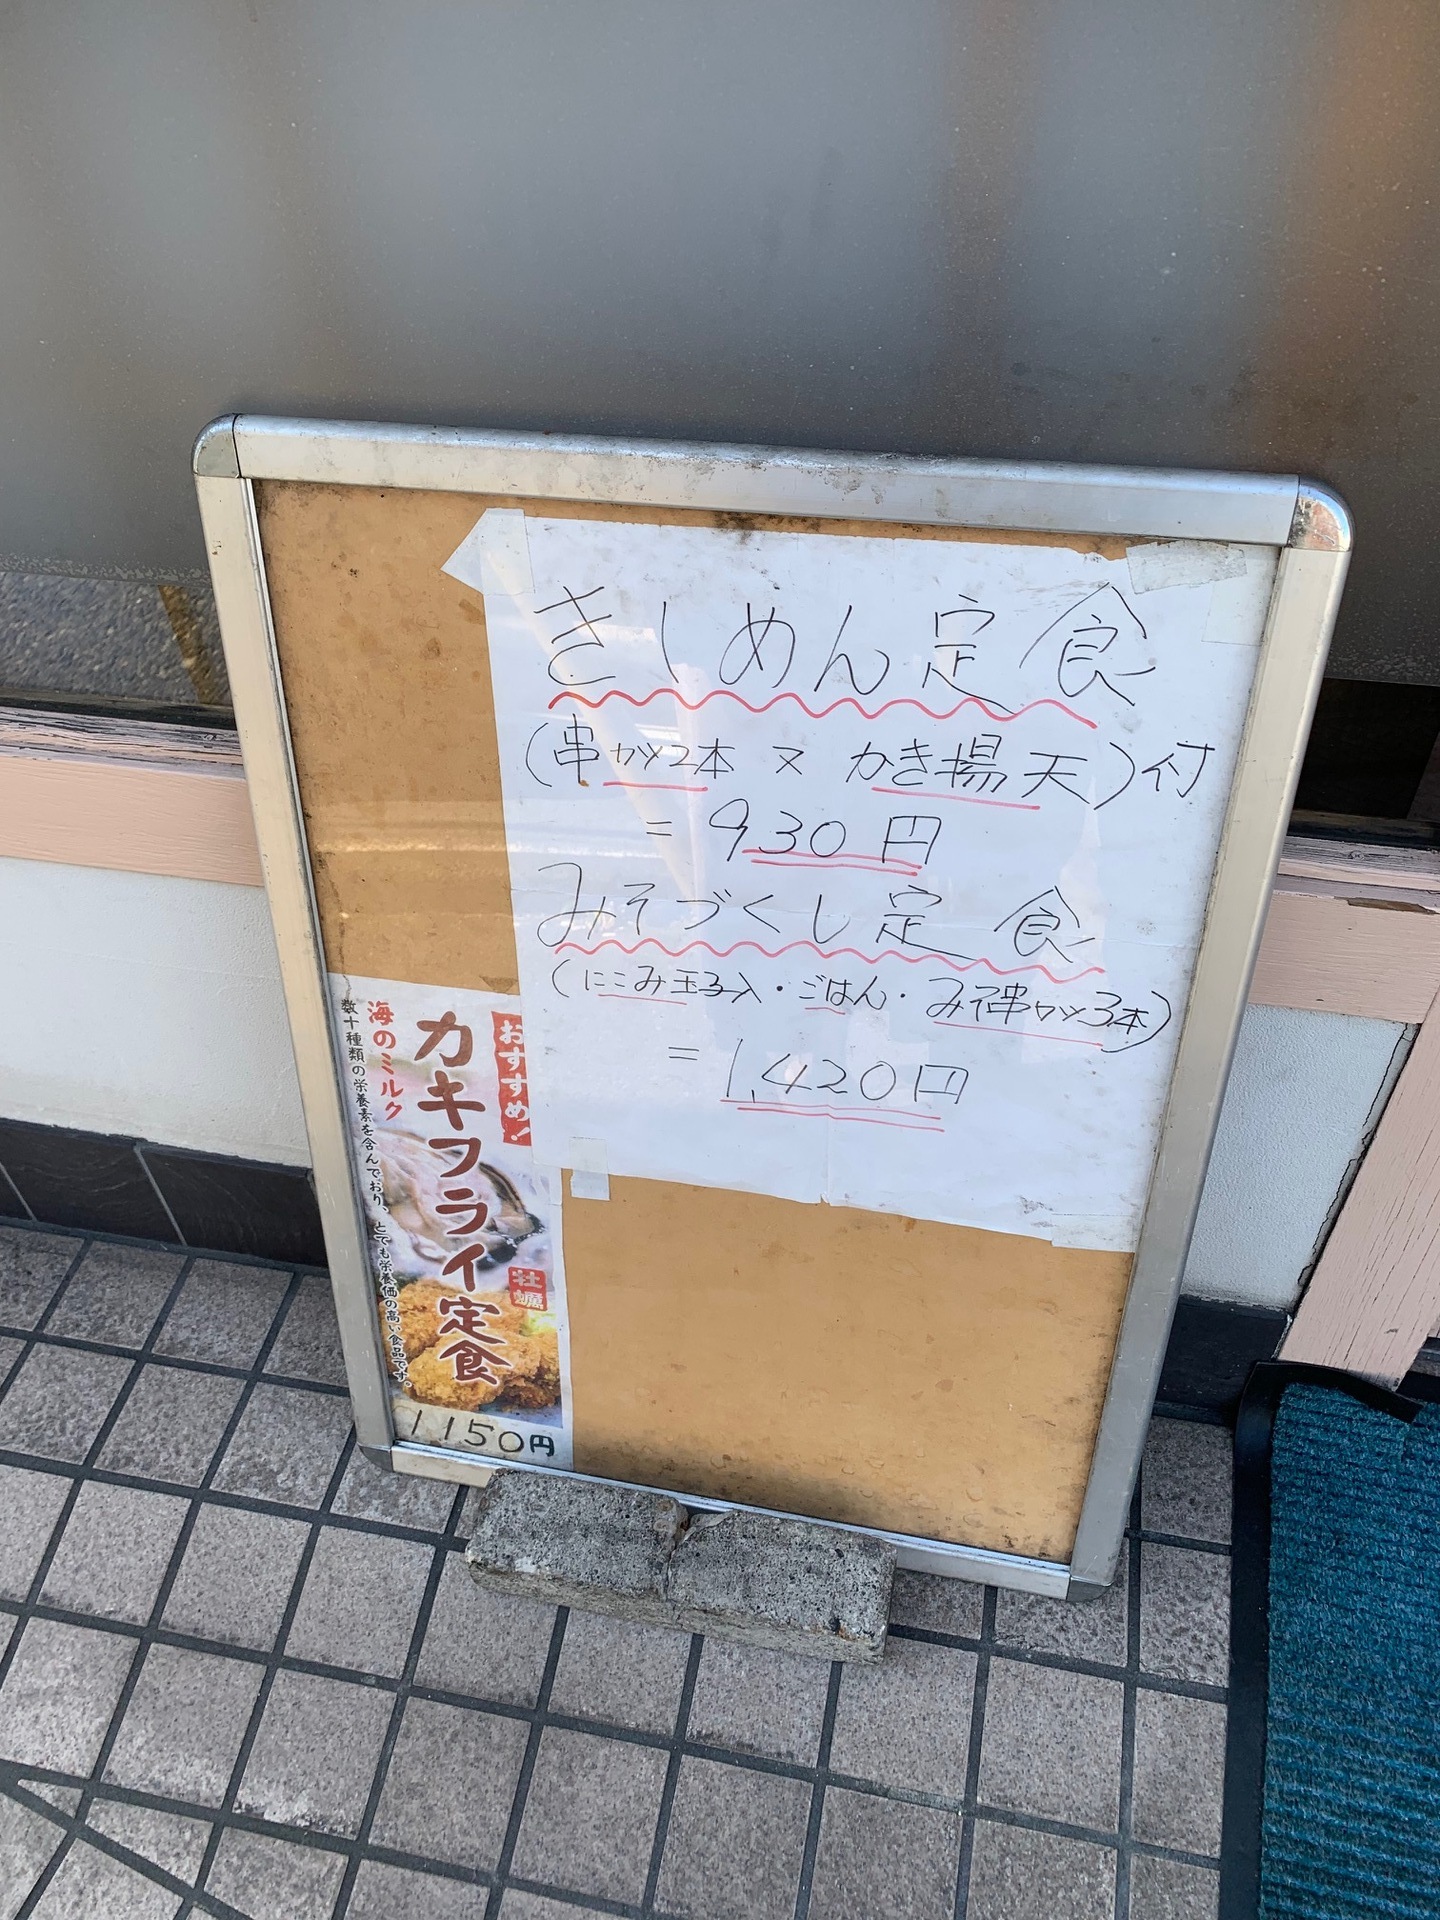 きしめん定食
(串カツ2本 又 かき揚天)付
= 930円
みそづくし定食
(にこみ玉子入・ごはん・みそ串カツ3本)
= 1,420円
おすすめ!
カキフライ定食
牡蠣
海のミルク
数十種類の栄養素を含んでおり、とても栄養価の高い食品です。
1150円